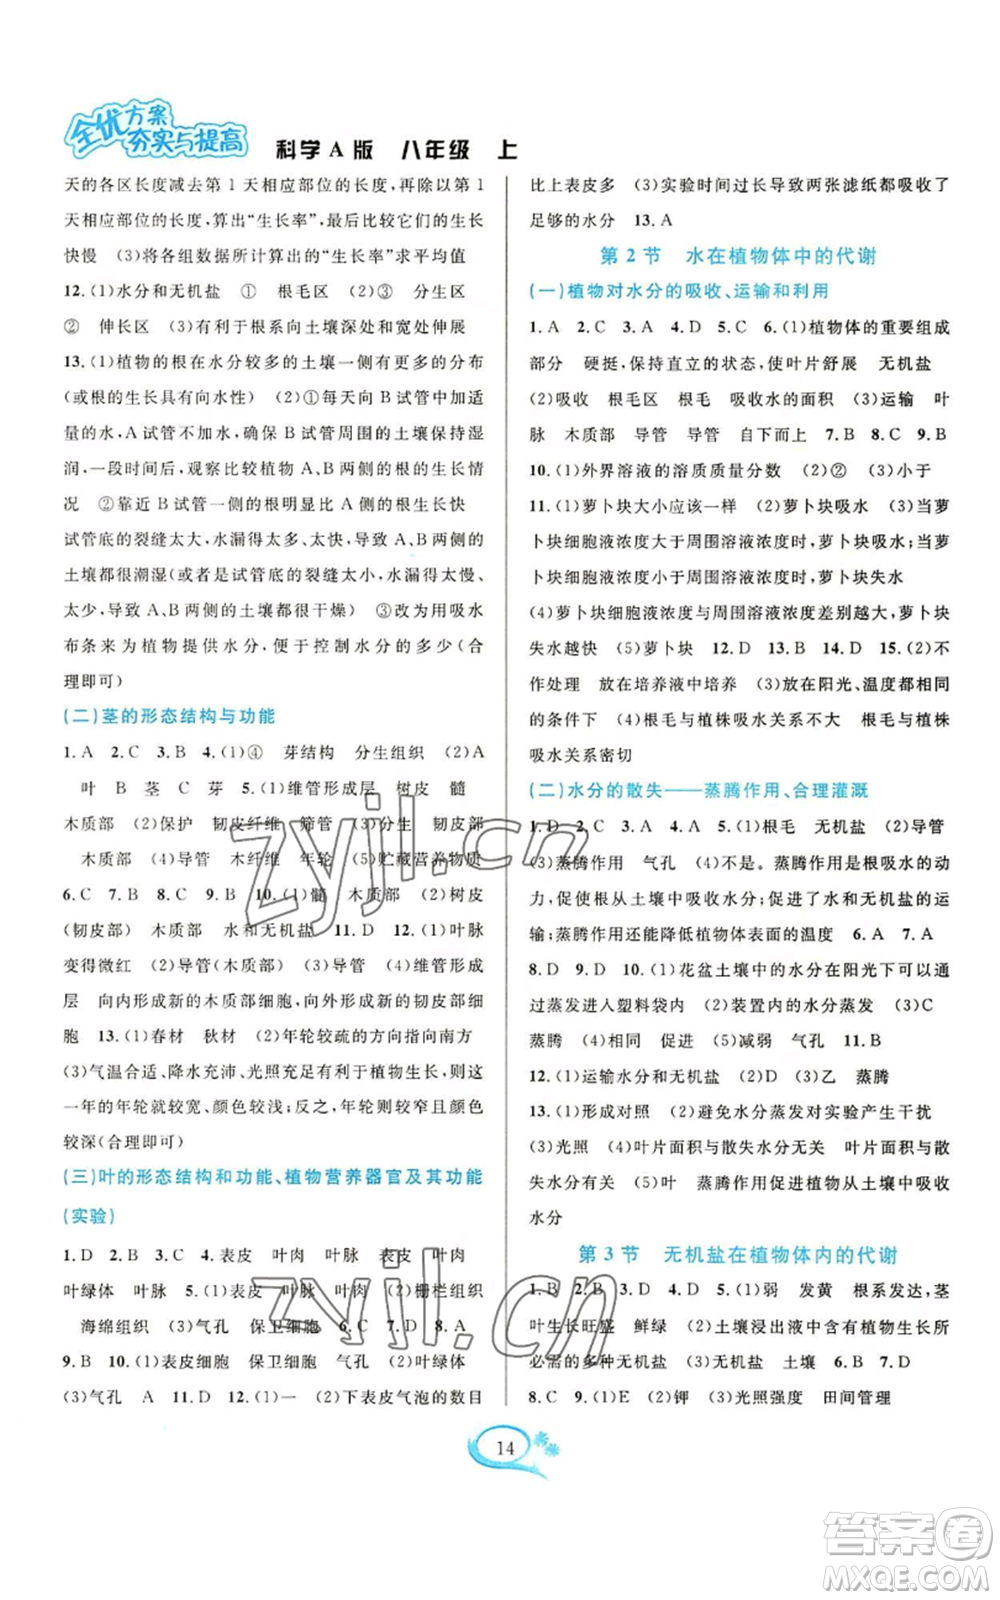 全优方案
夯实与提高
科学A版 八年级 上
天的各区长度减去第1天相应部位的长度,再除以第1
天相应部位的长度,算出“生长率”,最后比较它们的生长
快慢 (3)将各组数据所算的“生长率”求平均值
12.(1)水分和无机盐 ① 根毛区 (2)③ 分生区
② 伸长区 (3)有利于根系向土壤深处和宽处伸展
13.(1)植物的根在水分较多的土壤一侧有更多的分布
(或根的生长具有向水性) (2)①每天向B试管中加适
量的水,A试管不加水,确保B试管周围的土壤保持湿
润,一段时间后,观察比较植物A、B两侧的根的生长情
况 ②靠近B试管一侧的根明显比A侧的根生长快
试管底的裂缝太大,水漏得太多、太快,导致A、B两侧的
土壤都很潮湿(或是试管底的裂缝太小,水漏得太慢、
太少,导致A、B两侧的土壤都很干燥) ③改为用吸水
布条来为植物提供水分,便于控制水分的多少(合
理即可)
(二)茎的形态结构与功能
1.A 2.C 3.B 4.(1)④ 芽结构 分生组织 (2)A
叶 B 茎 C 芽 5.(1)维管形成层 树皮 髓
木质部 (2)保护 韧皮纤维 筛管 (3)分生 韧皮部
木质部 (4)导管 木纤维 年轮 (5)贮藏营养物质
6.C 7.B 8.D 9.B 10.(1)髓 木质部 (2)树皮
(韧皮部) 木质部 水和无机盐 11.D 12.(1)叶脉
变得微红 (2)导管(木质部) (3)导管 (4)维管形成
层 向内形成新的木质部细胞,向外形成新的韧皮部细
胞 13.(1)春材 秋材 (2)年轮较疏的方向指向南方
(3)气温合适、降水充沛、光照充足有利于植物生长,使这
一年的年轮就较宽、颜色较浅;反之,年轮则较窄、颜色
较深(合理即可)
(三)叶的形态结构和功能、植物营养器官及其功能
(实验)
1.D 2.B 3.C 4.表皮 叶肉 叶脉 表皮 叶肉
叶绿体 叶脉 5.(1)表皮 叶肉 叶脉 (2)栅栏组织
海绵组织 (3)气孔 保卫细胞 6.D 7.D 8.A
9.B 10.(1)表皮细胞 保卫细胞 气孔 (2)叶绿体
(3)气孔 A 11.D 12.(1)一 (2)下表皮气泡的数目
比上表皮多 (3)实验时间过长导致两张滤纸都吸收了
足够的水分 13.A
第2节 水在植物体中的代谢
(一)植物对水分的吸收、运输和利用
1.A 2.C 3.A 4.D 5.C 6.(1)植物体的重要组成
部分 硬挺,保持直立的状态,使叶片舒展 无机盐
(2)吸收 根毛区 根毛 吸收水的面积 (3)运输 叶
脉 木质部 导管 导管 自下而上 7.B 8.C 9.B
10.(1)外界溶液的溶质质量分数 (2)② (3)小于
11.(1)萝卜块大小应该一样 (2)萝卜块吸水 (3)当萝
卜块细胞液浓度大于周围溶液浓度时,萝卜块吸水;当萝
卜块细胞液浓度小于周围溶液浓度时,萝卜块失水
(4)萝卜块细胞液浓度与周围溶液浓度差别越大,萝卜块
失水越快 (5)萝卜块 12.D 13.B 14.B 15.(2)不
作处理 放在培养液中培养 (3)放在阳光、温度都相同
的条件下 (4)根毛与植株吸水关系不大 根毛与植株
吸水关系密切
(二)水分的散失——蒸腾作用、合理灌溉
1.D 2.C 3.A 4.A 5.(1)根毛 无机盐 (2)导管
(3)蒸腾作用 气孔 (4)不是。蒸腾作用是根吸水的动
力,促使根从土壤中吸收水分;促进了水和无机盐的运
输;蒸腾作用还能降低植物体表面的温度 6.A 7.A
8.D 9.D 10.(1)花盆土壤中的水分在阳光下可以通
过蒸发进入塑料袋内 (2)装置中的水分蒸发 (3)C
蒸腾 (4)相同 促进 (5)减弱 气孔 11.B
12.(1)运输水分和无机盐 (2)D (3)乙 蒸腾
13.(1)形成对照 (2)避免水分蒸发对实验产生干扰
(3)光照 (4)叶片面积与散失水分无关 叶片面积与散
失水分有关 (5)叶 蒸腾作用促进植物从土壤中吸收
水分
第3节 无机盐在植物体内的代谢
1.B 2.B 3.D 4.D 5.(1)弱 发黄 根系发达,茎
叶生长旺盛 鲜绿 (2)土壤浸出液中含有植物生长所
必需的多种无机盐 无机盐 土壤 6.B 7.D
8.C 9.(1)E (2)钾 (3)光照强度 田间管理
14
zyjl.cn
zyjl.cn
答案圈
MXQE.COM